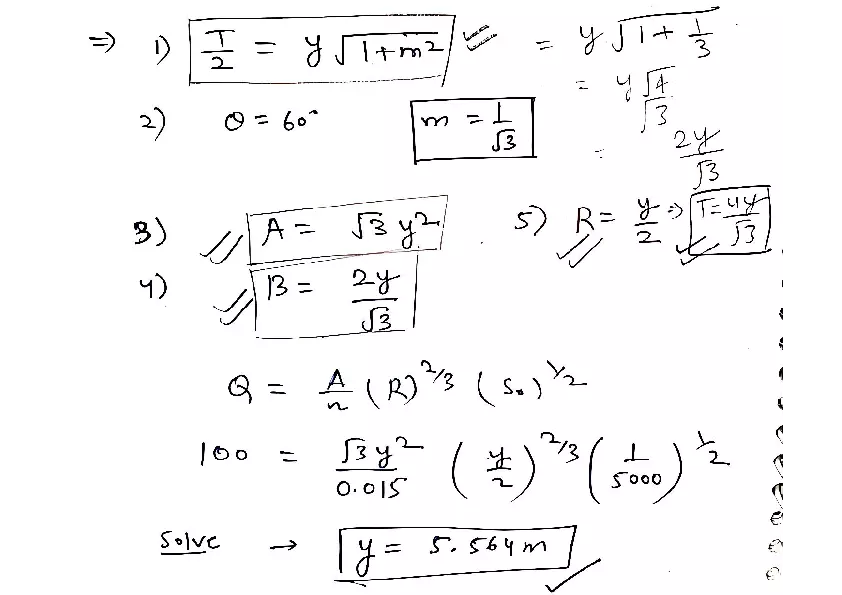 ⇒ 1) T/2 = y√(1+m²) = y√(1+1/3)
= y√4/√3
2) θ = 60° m = 1/√3 = 2y/√3
3) A = √3 y² 5) R = y/2 ⇒ T = 4y/√3
4) B = 2y/√3
Q = A/n (R)^2/3 (S₀)^1/2
100 = √3 y²/0.015 (y/2)^2/3 (1/5000)^1/2
Solve → y = 5.564 m